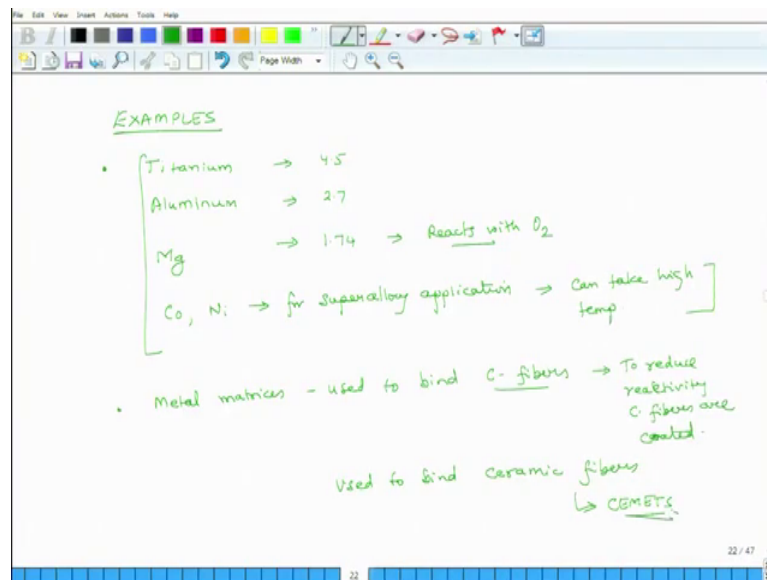 File Edit View Insert Actions Tools Help
B I
Page Width
EXAMPLES
• Titanium → 4.5
Aluminum → 2.7
Mg → 1.74 → Reacts with O2
Co, Ni → for supercalloy application → Can take high
temp
• Metal matrices - used to bind C- fibers → To reduce
reactivity
C. fibers are
coated.
used to bind ceramic fibers
↳ CEMETS
22 / 47
22